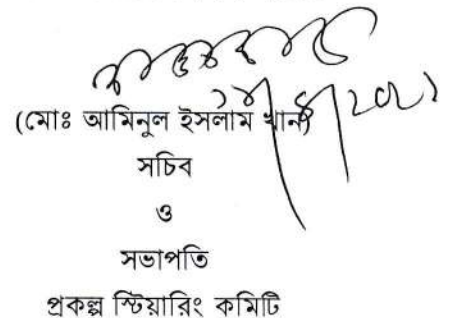 (মোঃ আমিনুল ইসলাম খান)
সচিব
ও
সভাপতি
প্রকল্প স্টিয়ারিং কমিটি